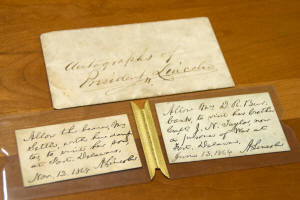 Autographs of
President Lincoln
Allow the bearer, Mr.
Settle, with his
to visit his son,
at Fort Delaware.
Nov. 13, 1864 A. Lincoln
Allow Mrs.
to visit his brother
Capt. J. N. Taylor, now
a prisoner of War at
Fort Delaware.
June 13, 1864. A. Lincoln